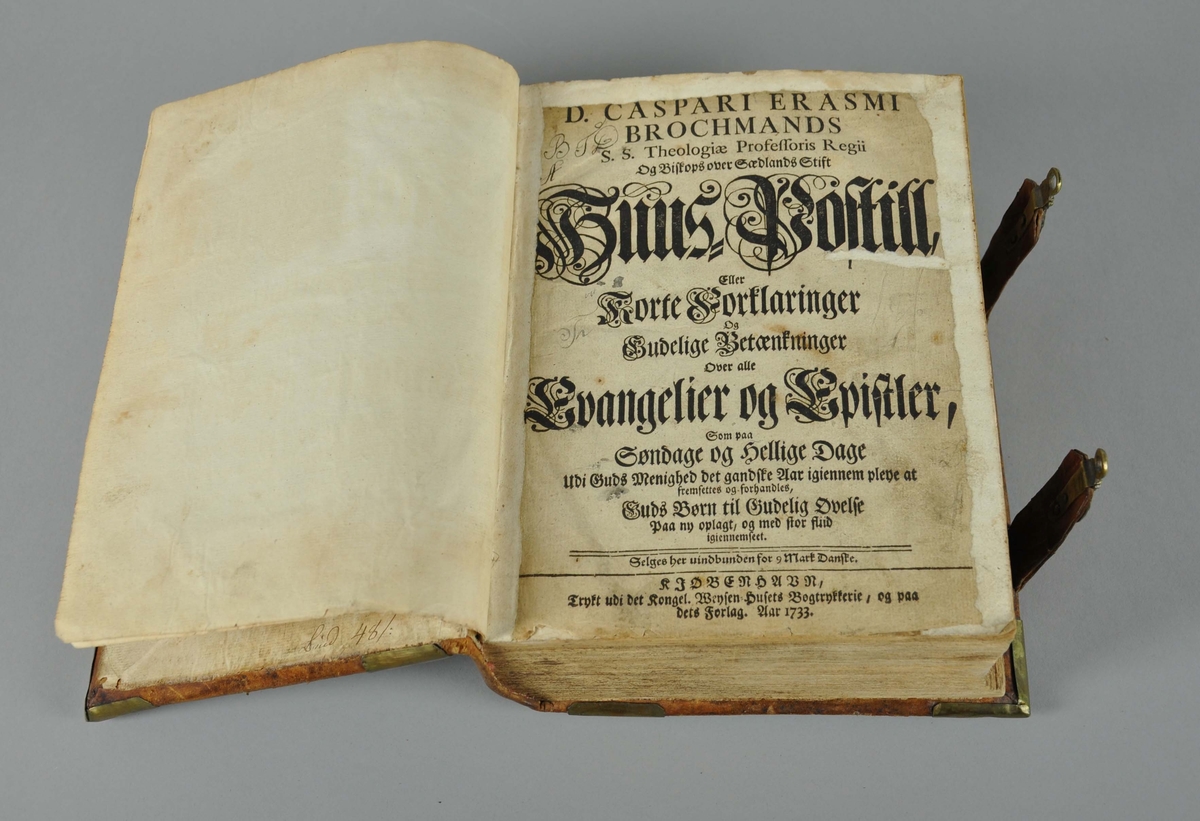 D. CASPARI ERASMI
BROCHMANDS
S. S. Theologiæ Professoris Regii
Og Biskops over Sædlands Stift
Huus-Postill,
Eller
Korte Forklaringer
Og
Gudelige Betænkninger
Over alle
Evangelier og Epistler,
Som paa
Søndage og Hellige Dage
Udi Guds Menighed det gandske Aar igiennem pleye at
fremsettes og forhandles,
Guds Børn til Gudelig Øvelse
Paa ny oplagt, og med stor fliid
igiennemseet.
Selges her uindbunden for 9 Mark Danske.
KIØBENHAVN,
Trykt udi det Kongel. Weysen-Husets Bogtrykkerie, og paa
dets Forlag. Aar 1733.